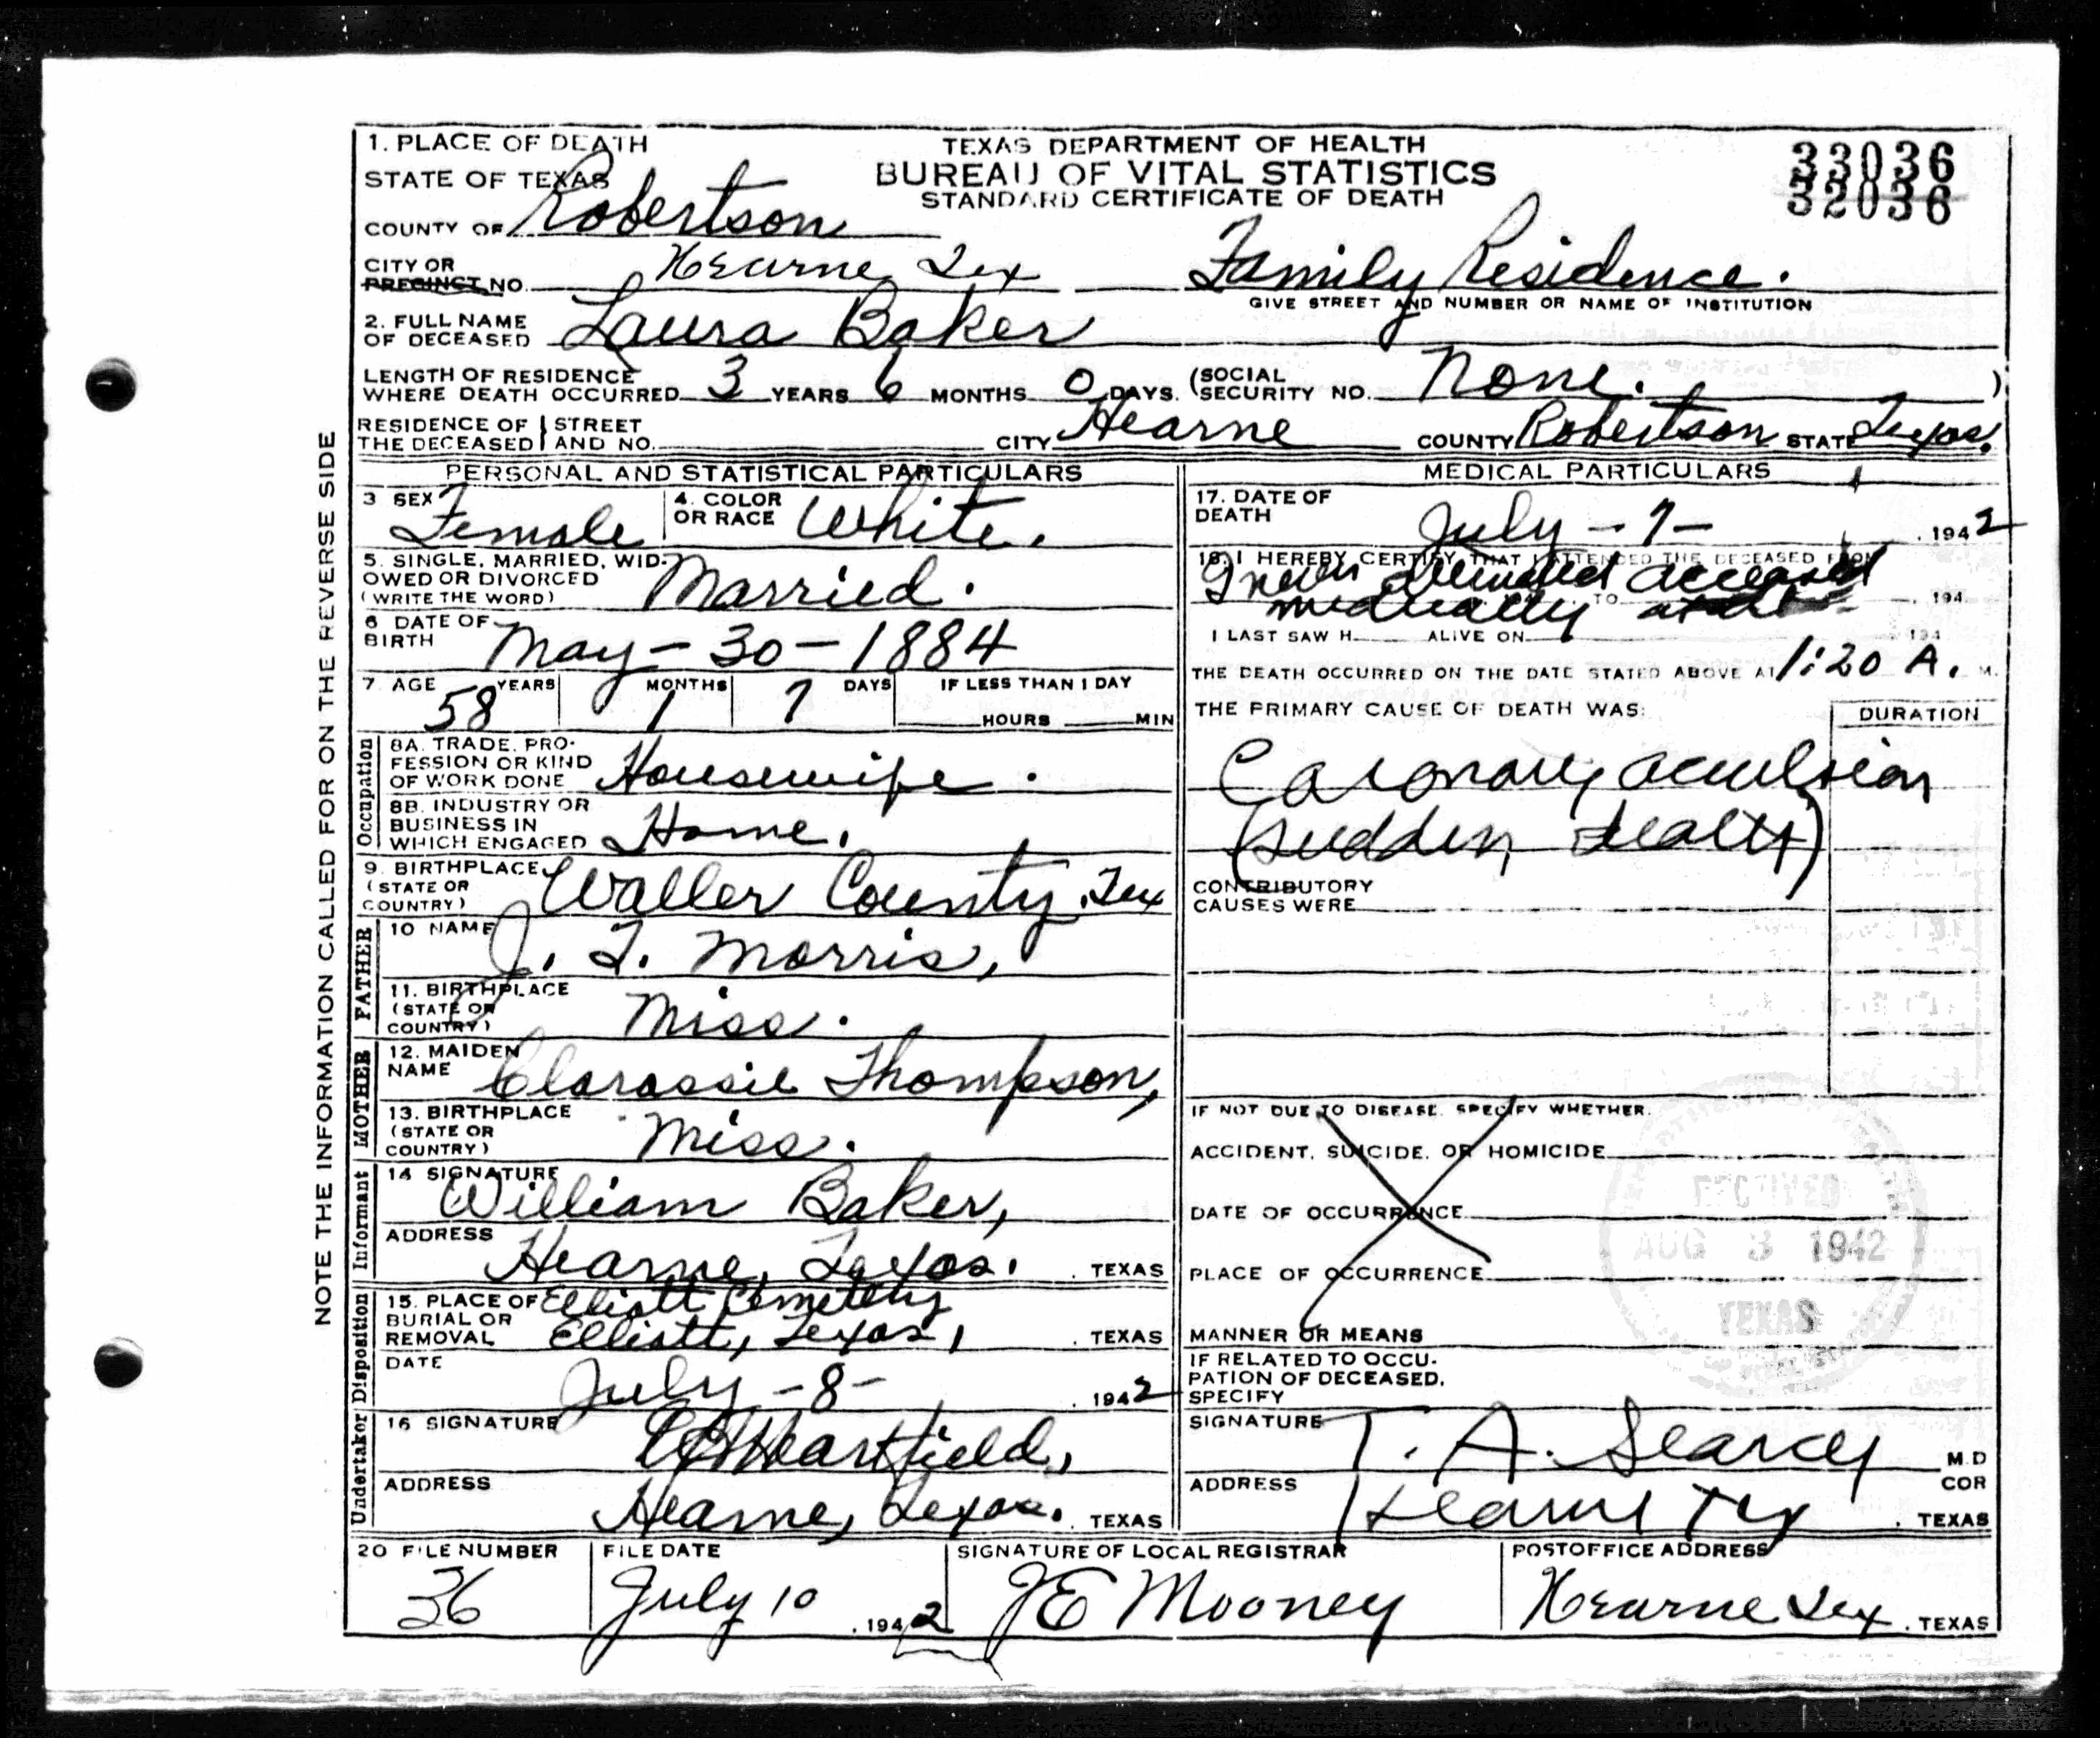 1. PLACE OF DEATH
STATE OF TEXAS
TEXAS DEPARTMENT OF HEALTH
BUREAU OF VITAL STATISTICS
STANDARD CERTIFICATE OF DEATH
33036
32036
COUNTY OF Robertson
CITY OR PRECINCT NO. Hearne Tex Family Residence.
GIVE STREET AND NUMBER OR NAME OF INSTITUTION
2. FULL NAME OF DECEASED Laura Baker
LENGTH OF RESIDENCE WHERE DEATH OCCURRED 3 YEARS 6 MONTHS 0 DAYS. (SOCIAL SECURITY NO. None. )
RESIDENCE OF THE DECEASED STREET AND NO. CITY Hearne COUNTY Robertson STATE Texas.
NOTE THE INFORMATION CALLED FOR ON THE REVERSE SIDE
PERSONAL AND STATISTICAL PARTICULARS
3 SEX Female 4. COLOR OR RACE White.
5. SINGLE, MARRIED, WIDOWED OR DIVORCED (WRITE THE WORD) Married.
6 DATE OF BIRTH May - 30 - 1884
7. AGE 58 YEARS 1 MONTHS 7 DAYS IF LESS THAN 1 DAY HOURS MIN
Occupation
8A. TRADE, PROFESSION OR KIND OF WORK DONE Housewife.
8B. INDUSTRY OR BUSINESS IN WHICH ENGAGED Home.
9. BIRTHPLACE (STATE OR COUNTRY) Waller County, Tex
FATHER
10 NAME J. T. Morris,
11. BIRTHPLACE (STATE OR COUNTRY) Miss.
MOTHER
12. MAIDEN NAME Clarassie Thompson,
13. BIRTHPLACE (STATE OR COUNTRY) Miss.
Informant
14 SIGNATURE William Baker,
ADDRESS Hearne, Texas. TEXAS
Disposition
15. PLACE OF BURIAL OR REMOVAL Elliott Cemetery
Elliott, Texas, TEXAS
DATE July - 8 - 1942
Undertaker
16 SIGNATURE Hartfield,
ADDRESS Hearne, Texas. TEXAS
MEDICAL PARTICULARS
17. DATE OF DEATH July - 7 - 1942
18. I HEREBY CERTIFY THAT I ATTENDED THE DECEASED FROM
I never attended deceased
medically TO 194
I LAST SAW H ALIVE ON 194
THE DEATH OCCURRED ON THE DATE STATED ABOVE AT 1:20 A. M.
THE PRIMARY CAUSE OF DEATH WAS: DURATION
Coronary occulsion
(sudden death)
CONTRIBUTORY CAUSES WERE
IF NOT DUE TO DISEASE, SPECIFY WHETHER:
ACCIDENT, SUICIDE, OR HOMICIDE
DATE OF OCCURRENCE
PLACE OF OCCURRENCE
MANNER OR MEANS
RECEIVED
AUG 3 1942
TEXAS
IF RELATED TO OCCUPATION OF DECEASED, SPECIFY
SIGNATURE T. A. Searcy M D
COR
ADDRESS Hearne Tex TEXAS
20 FILE NUMBER 36
FILE DATE July 10 1942
SIGNATURE OF LOCAL REGISTRAR JE Mooney
POSTOFFICE ADDRESS Hearne Tex. TEXAS